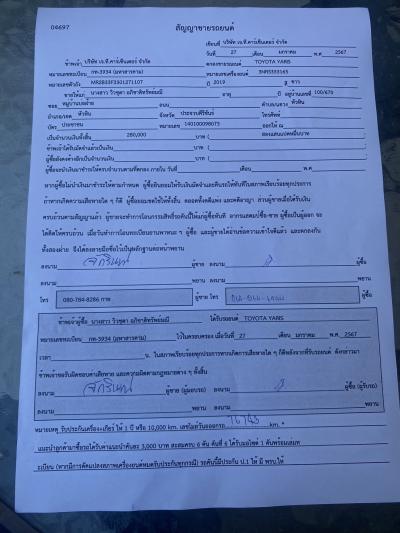 04697
สัญญาขายรถยนต์
เขียนที่ บริษัท เจ.ที.คาร์เซ็นเตอร์ จำกัด
วันที่ 27 เดือน มกราคม พ.ศ 2567
ข้าพเจ้า บริษัท เจ.ที.คาร์เซ็นเตอร์ จำกัด ตกลงขายรถยนต์ TOYOTA YARIS
หมายเลขทะเบียน กท-3934 (มหาสารคาม) หมายเลขเครื่องยนต์
หมายเลขตัวถัง MR2B33F3501271107 ปี 2019 สี ขาว
ขายให้แก่ นางสาว อายุ ปี อยู่บ้านเลขที่ 100/676
ซอย หมู่บ้านบ่อฝ้าย ถนน ตำบล/แขวง หัวหิน
อำเภอ/เขต หัวหิน จังหวัด ประจวบคีรีขันธ์ โทรศัพท์
บัตร ประชาชน หมายเลข ออกให้ ณ
เป็นจำนวนเงินทั้งสิ้น 280,000 บาท ( สองแสนแปดหมื่นบาท
ข้าพเจ้าได้รับมัดจำแล้วเป็นเงิน บาท (
ผู้ซื้อยังคงค้างอีกเป็นจำนวนเงิน บาท (
ผู้ซื้อจะนำเงินมาชำระให้ครบจำนวนตามที่ตกลง ภายใน วันที่ เดือน พ.ศ
หากผู้ซื้อไม่นำเงินมาชำระให้ตามกำหนด ผู้ซื้อยินยอมให้ริบเงินมัดจำและคืนรถให้ทันทีในสภาพเรียบร้อยทุกประการ
ถ้าหากเกิดความเสียหายใด ๆ ก็ดี ผู้ซื้อยอมชดใช้ให้ทั้งสิ้น ตลอดทั้งคดีแพ่ง และคดีอาญา ส่วนผู้ขายเมื่อได้รับเงิน
ครบถ้วนตามสัญญาแล้ว ผู้ขายจะทำการโอนกรรมสิทธิ์รถคันนี้ให้แก่ผู้ซื้อทันที
ทั้งสองฝ่าย จึงได้ลงลายมือชื่อไว้เป็นหลักฐานต่อหน้าพยาน
ลงนาม ผู้ขาย ลงนาม ผู้ซื้อ
ลงนาม พยาน ลงนาม พยาน
โทร 080-784-8286 ผู้ขาย โทร ผู้ซื้อ
ข้าพเจ้าผู้ซื้อ นางสาว ได้รับรถยนต์ TOYOTA YARIS
หมายเลขทะเบียน กท-3934 (มหาสารคาม) ไว้ในครอบครอง เมื่อวันที่ 27 เดือน มกราคม พ.ศ 2567
เวลา น. ในสภาพเรียบร้อยทุกประการหากเกิดการเสียหายใด ๆ ก็ดีหลังจากที่รับรถยนต์ ดังกล่าวมา
ข้าพเจ้าขอรับผิดชอบค่าเสียหาย และความผิดตามกฎหมายต่าง ๆ ทั้งสิ้น
ลงนาม ผู้ขาย (ผู้มอบรถ) ลงนาม ผู้ซื้อ (ผู้รับรถ)
ลงนาม พยาน ลงนาม พยาน
หมายเหตุ รับประกันเครื่อง+เกียร์ ให้ 1 ปี หรือ 10,000 km. เลขไมล์วันออกรถ 76743 km. *
แนะนำลูกค้ามาซื้อรถได้รับค่าแนะนำคันละ 3,000 บาท สะสมครบ 6 คัน คันที่ 6 ได้รับมอไซค์ 1 คันพร้อมเล่มท
ะเบียน (หากมีการดัดแปลงสภาพเครื่องยนต์หมดรับประกันทุกกรณี) รถคันนี้มีประกัน ป.1 ให้ มี พรบ.ให้